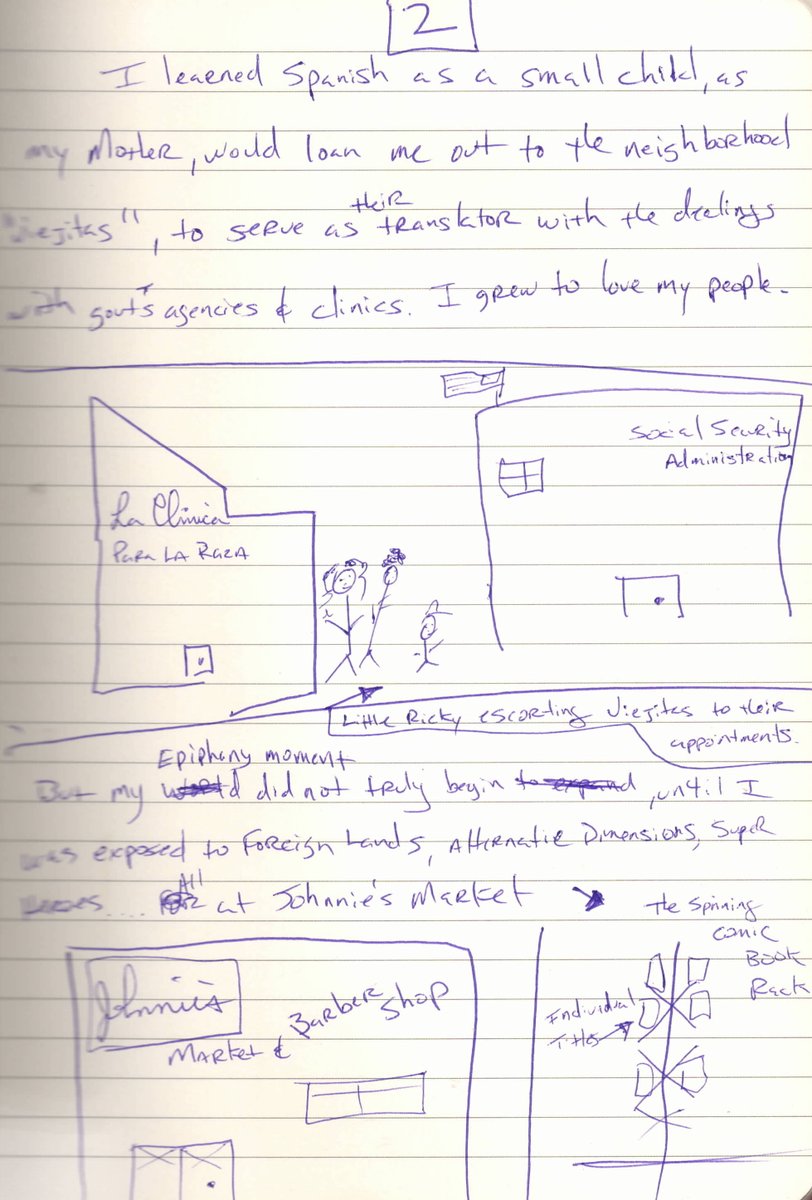 2
I learned Spanish as a small child, as
my Mother, would loan me out to the neighborhood
"Viejitas", to serve as their translator with the dealings
with gov't's agencies & clinics. I grew to love my people.
Social Security
Administration
La Clinica
Para La Raza
Little Ricky escorting Viejitas to their
appointments.
Epiphany moment
But my world did not truly begin to expand, until I
was exposed to Foreign Lands, Alternate Dimensions, Super
Heroes.... All at Johnnie's Market
The Spinning
Comic
Book
Rack
Individual
Titles
Johnnie's
Market &
Barber Shop